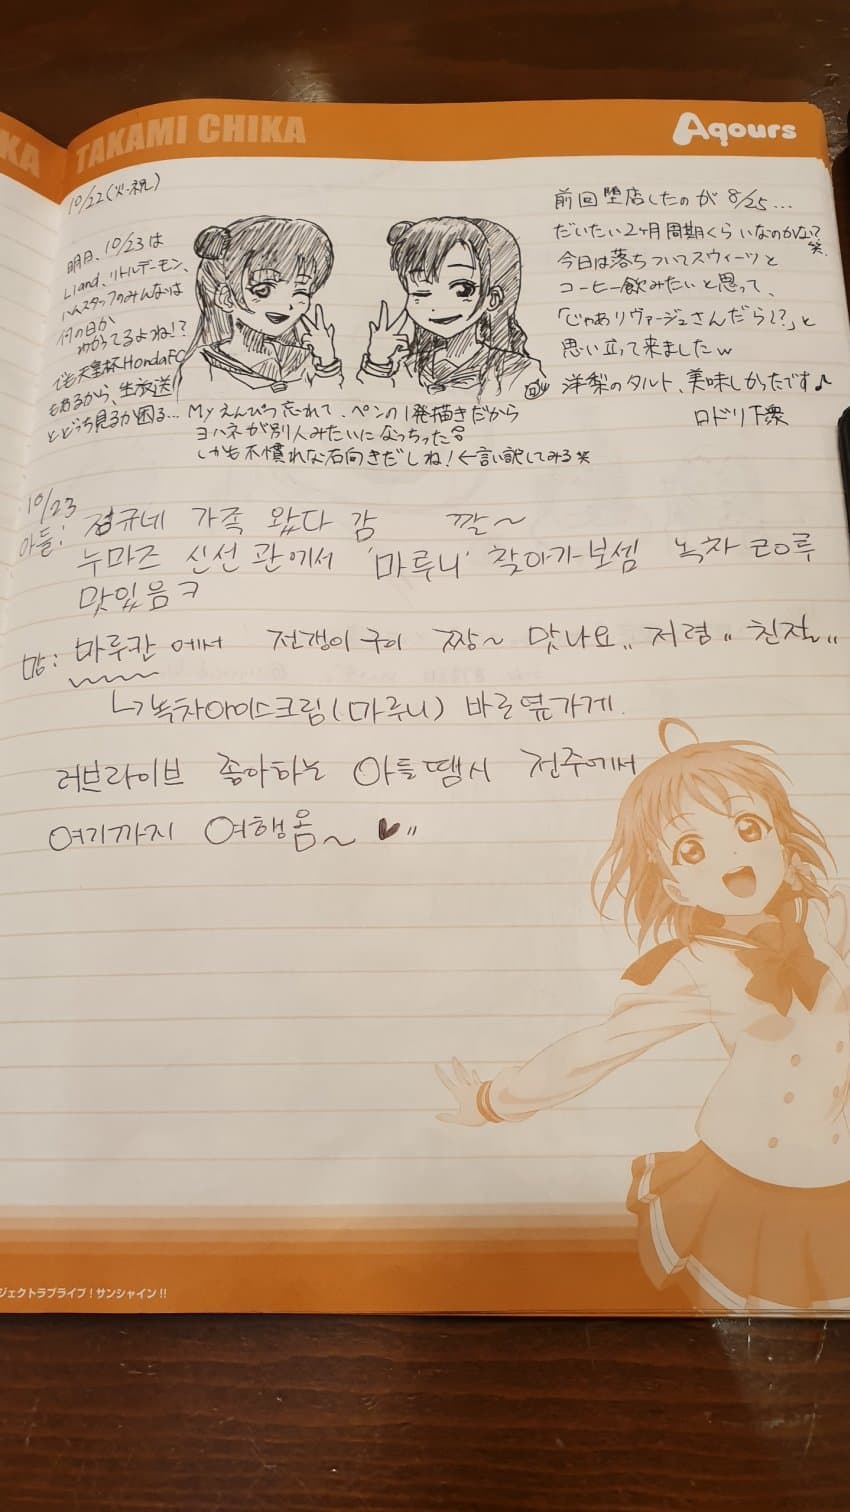 KA
TAKAMI CHIKA
Aqours
10/22(火・祝)
明日、10/23は
Liand、リトルデーモン、
ハムスタッフのみんなは
何の日か
わかってるよね!?
でも天皇杯HondaFC
もあるから、生放送
とどっち見るか困る…
Myえんぴつ忘れて、ペンの1発描きだから
ヨハネが別人みたいになっちった
しかも不慣れな右向きだしね!←言い訳してみる笑
前回堕店したのが8/25…
だいたい2ヶ月周期くらいなのかな?
笑
今日は落ちついてスウィーツと
コーヒー飲みたいと思って、
「じゃありヴァージュさんだら!?」と
思い立って来ましたw
洋梨のタルト、美味しかったです♪
ロドリゲ衆
10/23
아들: 정규네 가족 왔다 감 깔~
누마즈 신선관에서 '마루니' 찾아가보셈 녹차
맛있음ㅋ
맘: 마루칸에서 전갱이구이 짱~ 맛나요,, 저렴,, 친절,,
↳녹차아이스크림(마루니) 바로 옆가게.
러브라이브 좋아하는 아들땜시 전주에서
여기까지 여행옴~ ♥,,
ジェクトラブライブ!サンシャイン!!